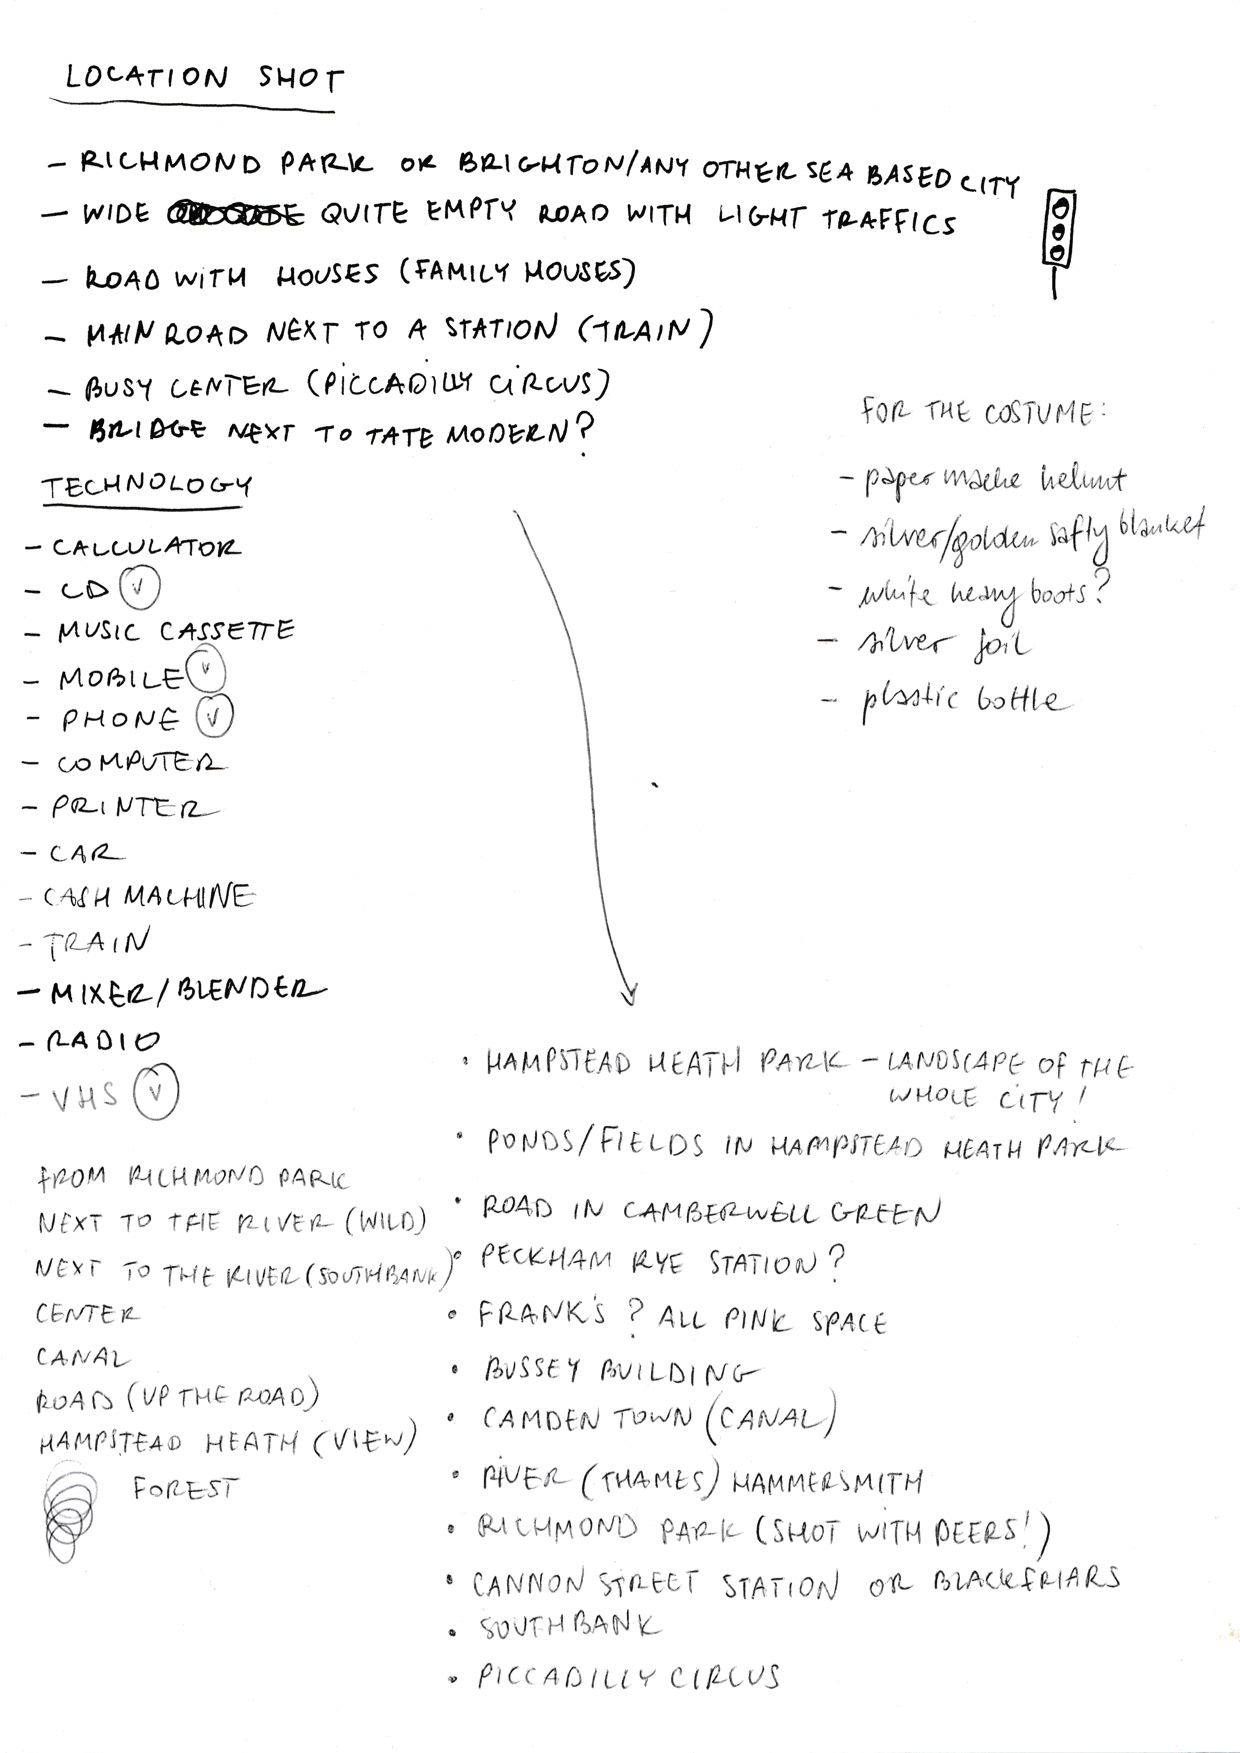 LOCATION SHOT
- RICHMOND PARK OR BRIGHTON/ANY OTHER SEA BASED CITY
- WIDE QUITE EMPTY ROAD WITH LIGHT TRAFFICS
- ROAD WITH HOUSES (FAMILY HOUSES)
- MAIN ROAD NEXT TO A STATION (TRAIN)
- BUSY CENTER (PICCADILLY CIRCUS)
- BRIDGE NEXT TO TATE MODERN?
FOR THE COSTUME:
- paper mache helmt
- silver/golden safty blanket
- white heavy boots?
- silver foil
- plastic bottle
TECHNOLOGY
- CALCULATOR
- CD V
- MUSIC CASSETTE
- MOBILE V
- PHONE V
- COMPUTER
- PRINTER
- CAR
- CASH MACHINE
- TRAIN
- MIXER/BLENDER
- RADIO
- VHS V
FROM RICHMOND PARK
NEXT TO THE RIVER (WILD)
NEXT TO THE RIVER (SOUTHBANK)
CENTER
CANAL
ROAD (UP THE ROAD)
HAMPSTEAD HEATH (VIEW)
FOREST
• HAMPSTEAD HEATH PARK - LANDSCAPE OF THE
WHOLE CITY!
• PONDS/FIELDS IN HAMPSTEAD HEATH PARK
• ROAD IN CAMBERWELL GREEN
• PECKHAM RYE STATION?
• FRANK'S ? ALL PINK SPACE
• BUSSEY BUILDING
• CAMDEN TOWN (CANAL)
• RIVER (THAMES) HAMMERSMITH
• RICHMOND PARK (SHOT WITH DEERS!)
• CANNON STREET STATION OR BLACKFRIARS
• SOUTHBANK
• PICCADILLY CIRCUS